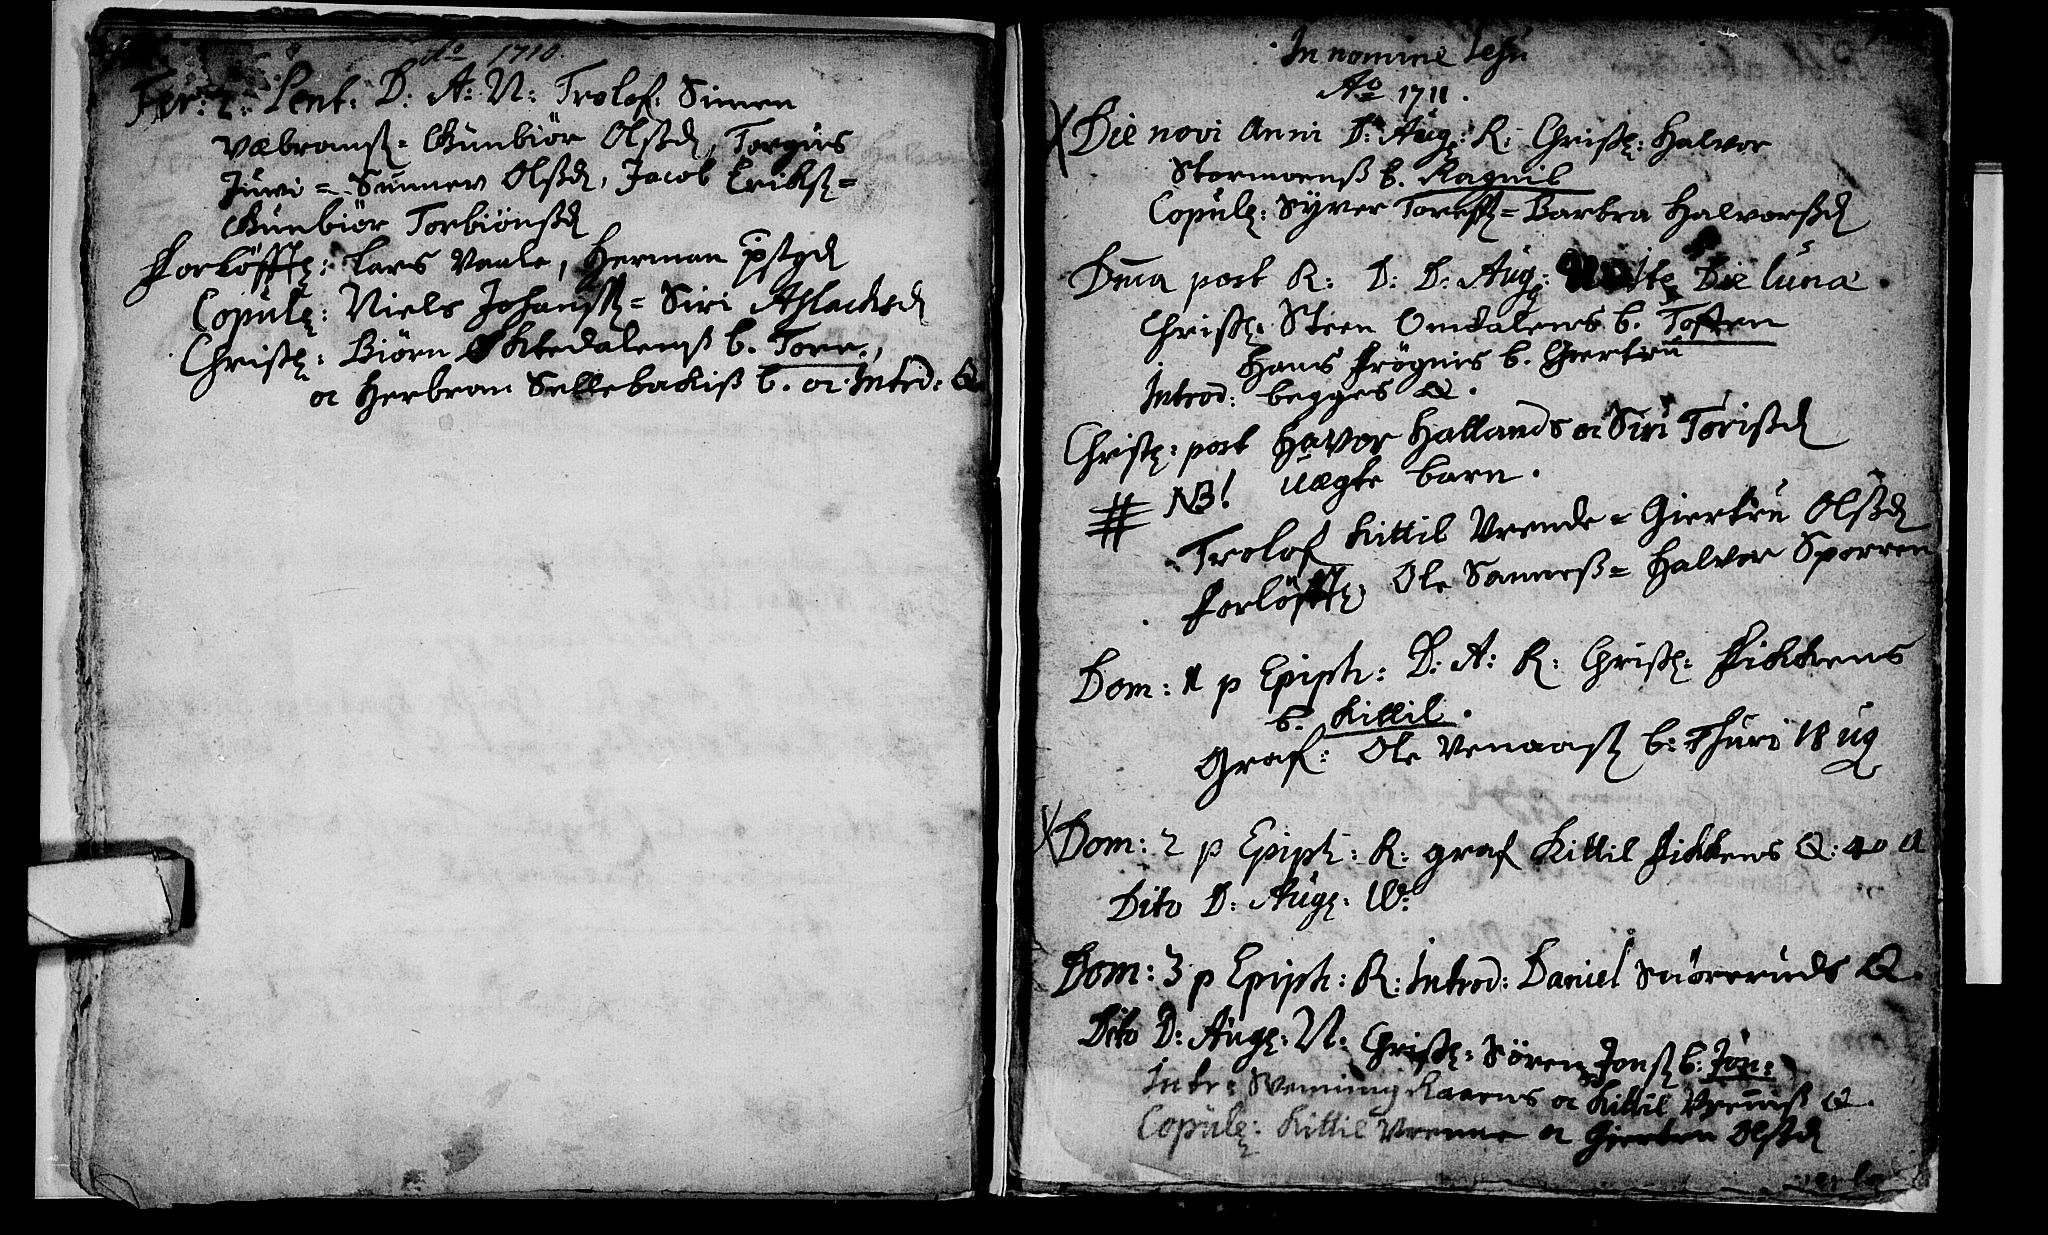 Ao 1710.
Fer: 2. Pent: D: A: N: Trolof: Simen
Væbrans: = Gunbiör Olsd, Torgius
Juwi = Sunnev Olsd, Jacob Eriks: =
Gunbiör Torbiönsd
Forlöfft: Lars Vaale, Herman
Copul: Niels Johans: = Siri Aslachsd
Christ: Biörn b. Tore.,
oc Herbran Sellebakis b. oc Introd: Q.
In nomine Jesu
Ao 1711.
Die novi Anni D: Aug: R: Christ: Halvor
Stormoens b. Ragnil
Copul: Syver Tores: = Barbra Halvorsd
Dma post R: D: D: Aug: Die lunæ.
Christ: Steen Omdalens b. Tosten
Hans Frögnis b. Giertru
Introd: begges Q.
Christ: post Havor Hallands oc Siri Torisd
# NB! uægte barn.
Trolof Kittil Vrende = Giertru Olsd
Forlöfft: Ole Sanness = Halvor Sporren
Dom: 1 p Epiph: D: A: R: Christ: Fikkens
b. Kittil.
Graf: Ole Venaas b: Thuri 18 ug
Dom: 2 p Epiph: R: graf Kittil Fikkens Q: 40 a
Dito D: Aug:
Dom: 3 p Epiph: R: Introd: Daniel Snöreruds Q.
Dito D: Aug: N: Christ: Sören Jons: b: Jon:
Intr: Svenning Kaarens oc Kittil Q.
Copul: Kittil Vrenne oc Giertru Olsd